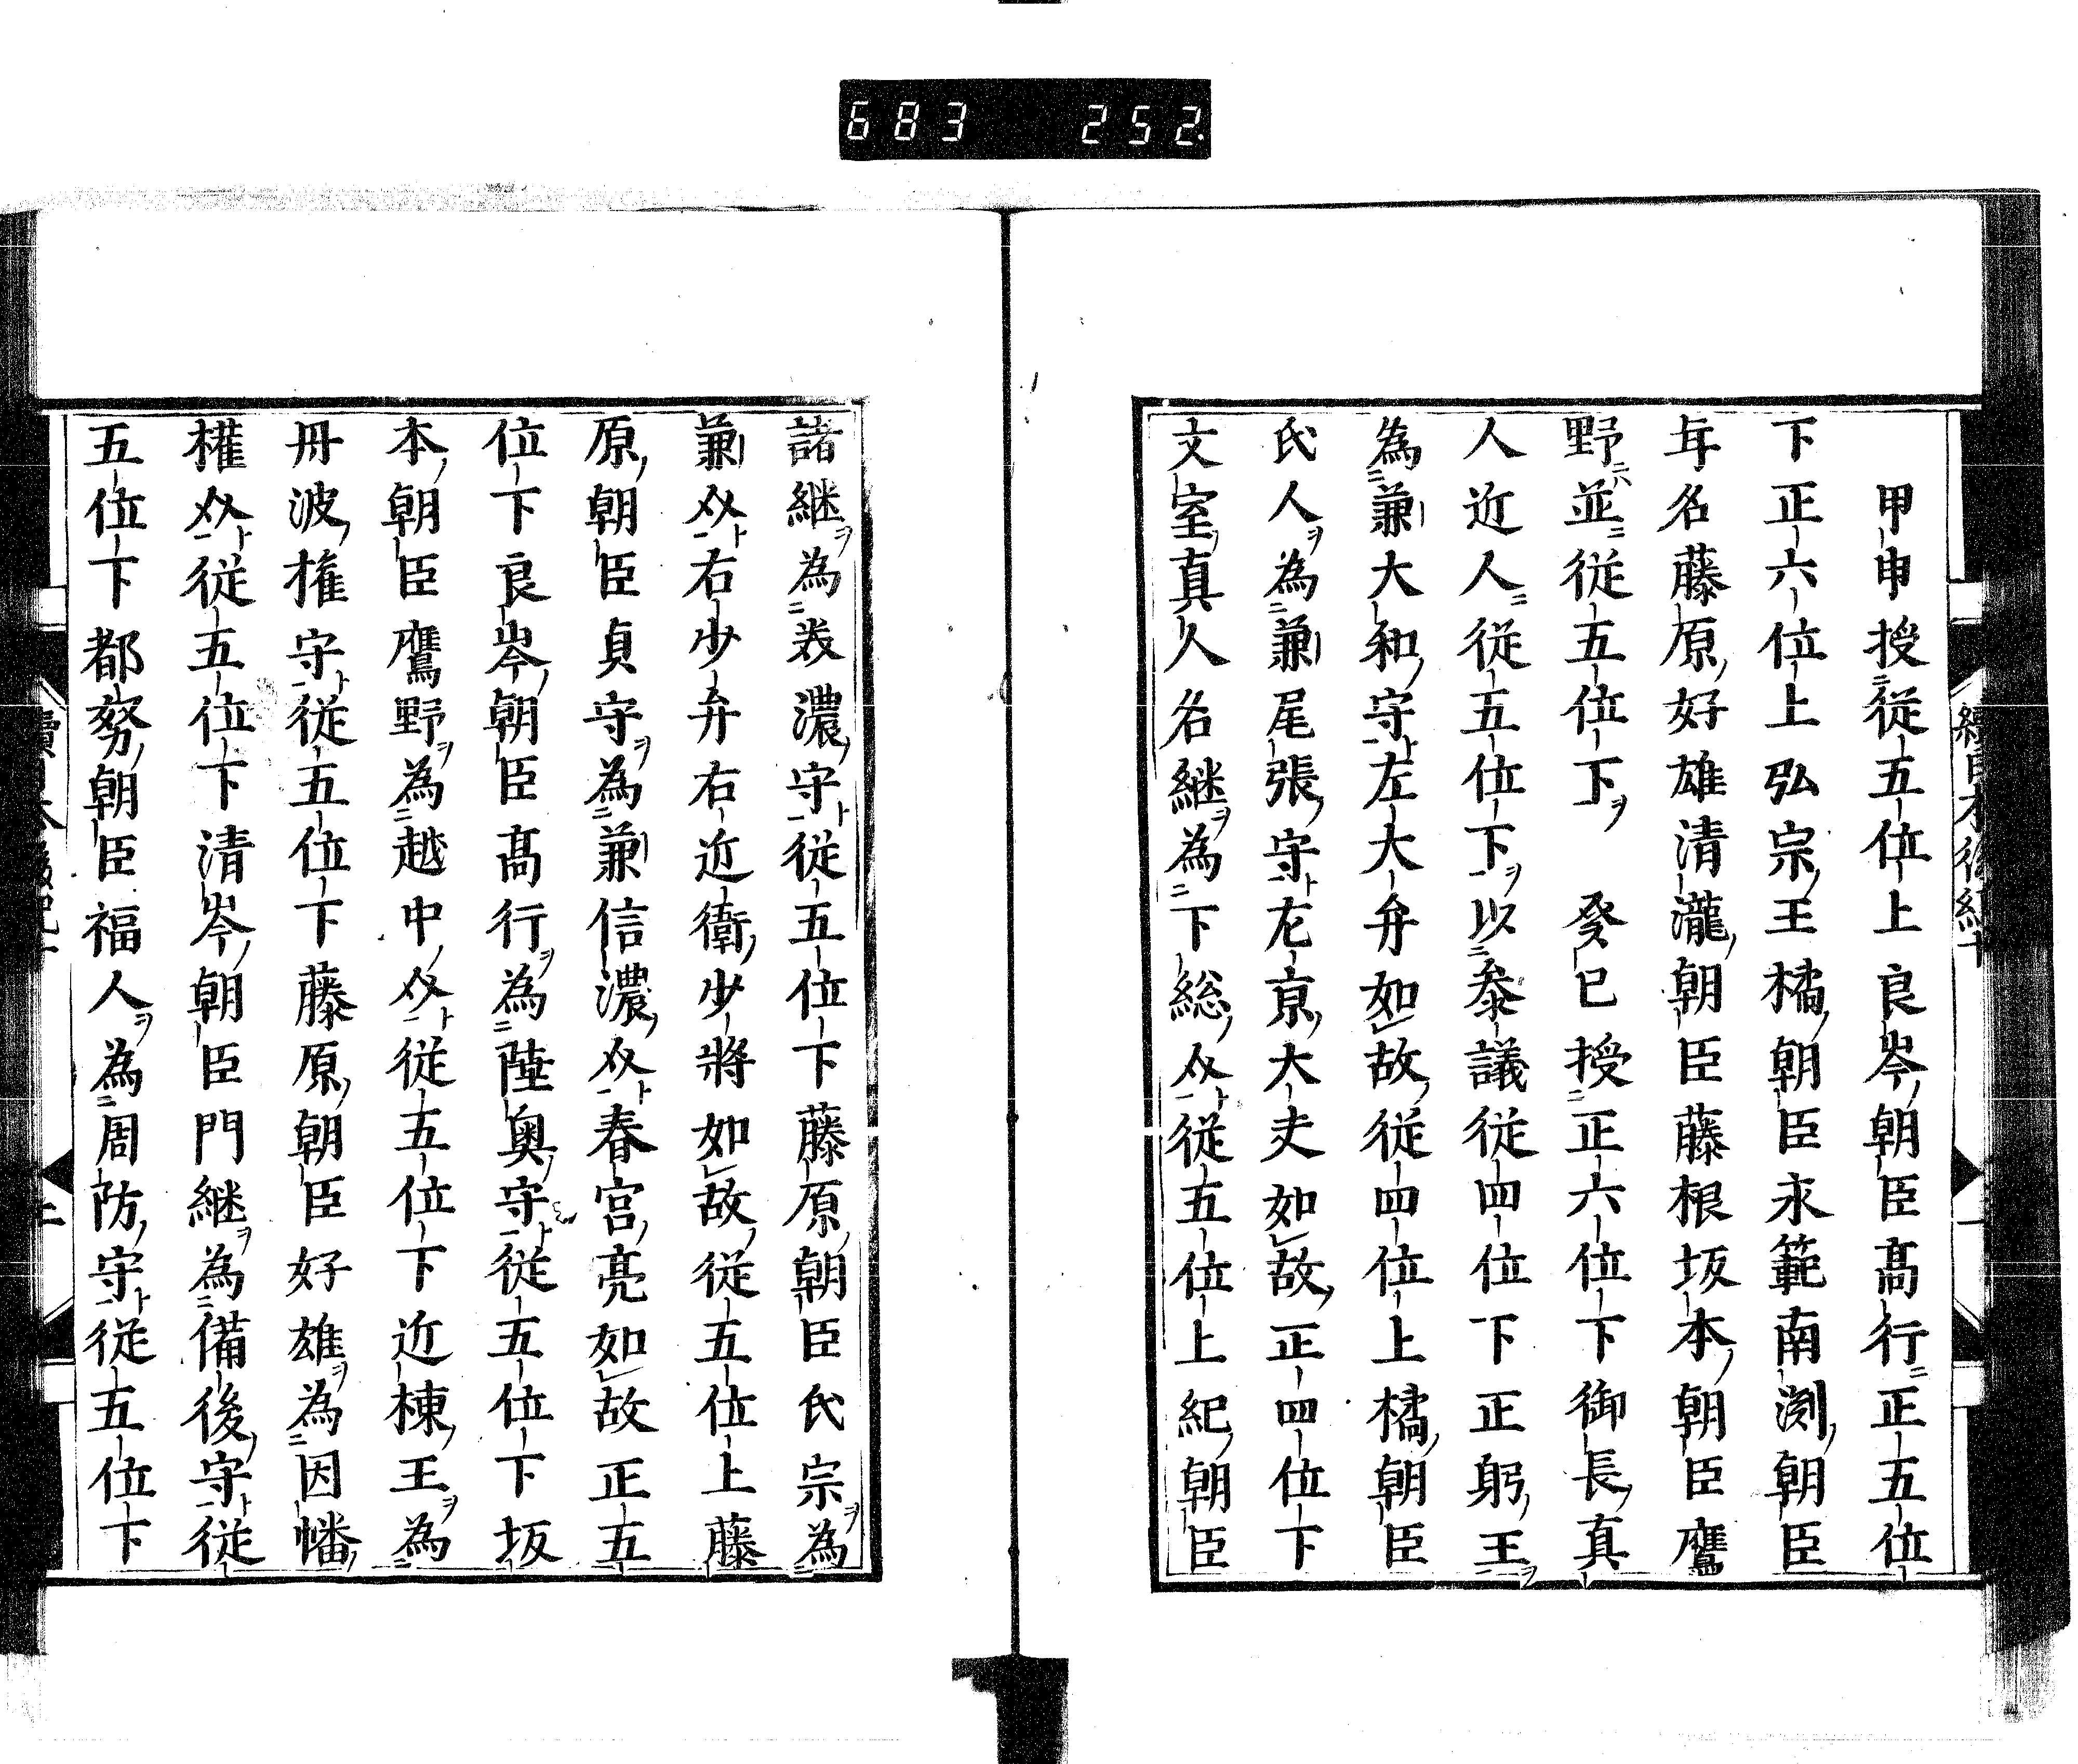 683 252
甲申授従五位上良岑朝臣髙行正五位
下正六位上弘宗王橘朝臣永範南渕朝臣
年名藤原好雄清瀧朝臣藤根坂本朝臣鷹
野並従五位下 癸巳授正六位下御長真
人近人従五位下以叅議従四位下正躬王
為兼大和守左大弁如故従四位上橘朝臣
氏人為兼尾張守左京大夫如故正四位下
文室真人名継為下総守従五位上紀朝臣
諸継為美濃守従五位下藤原朝臣氏宗為
兼右少弁右近衛少将如故従五位上藤
原朝臣貞守為兼信濃守春宮亮如故正五
位下良岑朝臣髙行為陸奥守従五位下坂
本朝臣鷹野為越中従五位下近棟王為
丹波権守従五位下藤原朝臣好雄為因幡
權従五位下清岑朝臣門継為備後守従
五位下都努朝臣福人為周防守従五位下